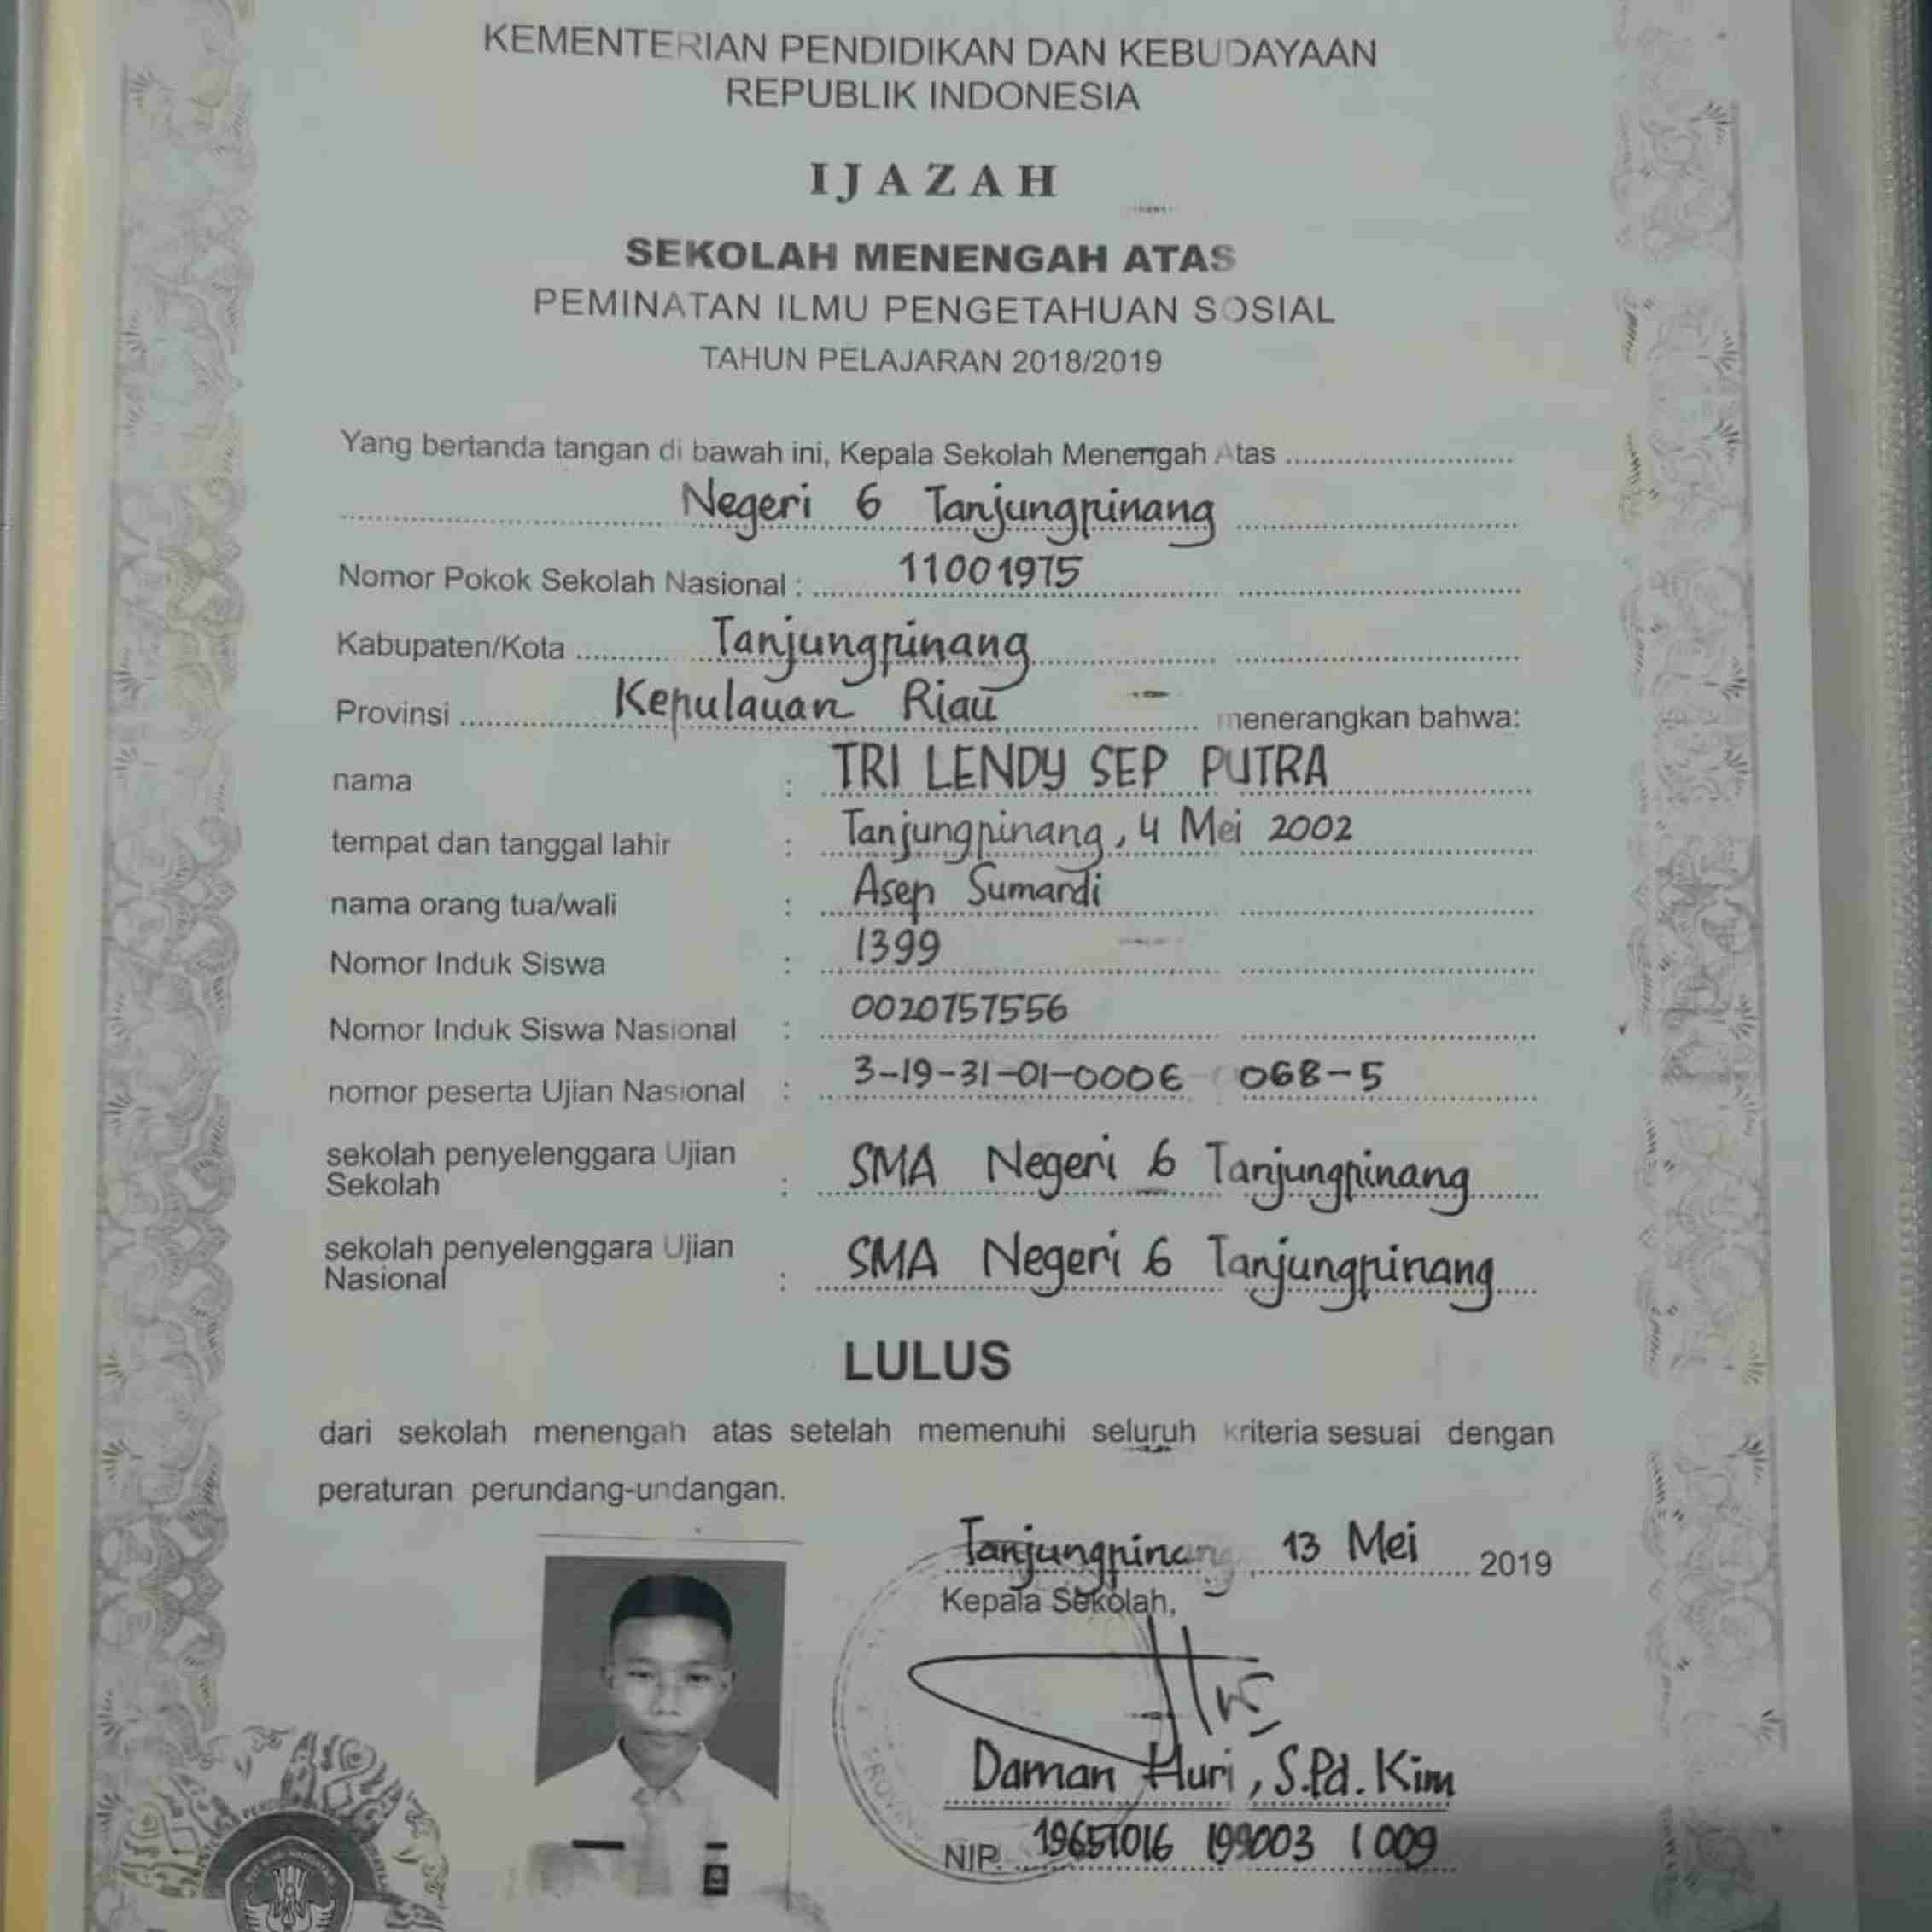 KEMENTERIAN PENDIDIKAN DAN KEBUDAYAAN
REPUBLIK INDONESIA
IJAZAH
SEKOLAH MENENGAH ATAS
PEMINATAN ILMU PENGETAHUAN SOSIAL
TAHUN PELAJARAN 2018/2019
Yang bertanda tangan di bawah ini, Kepala Sekolah Menengah Atas
Negeri 6 Tanjungpinang
Nomor Pokok Sekolah Nasional : 11001975
Kabupaten/Kota Tanjungpinang
Provinsi Kepulauan Riau menerangkan bahwa:
nama : TRI LENDY SEP PUTRA
tempat dan tanggal lahir : Tanjungpinang, 4 Mei 2002
nama orang tua/wali : Asep Sumardi
Nomor Induk Siswa : 1399
Nomor Induk Siswa Nasional : 0020757556
nomor peserta Ujian Nasional : 3-19-31-01-0006 068-5
sekolah penyelenggara Ujian
Sekolah : SMA Negeri 6 Tanjungpinang
sekolah penyelenggara Ujian
Nasional : SMA Negeri 6 Tanjungpinang
LULUS
dari sekolah menengah atas setelah memenuhi seluruh kriteria sesuai dengan
peraturan perundang-undangan.
Tanjungpinang, 13 Mei 2019
Kepala Sekolah,
Daman Huri, S.Pd. Kim
NIP. 19651016 199003 1 009